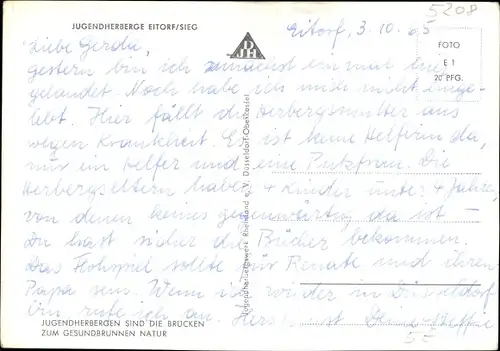 JUGENDHERBERGE EITORF/SIEG
5208
DJH
Eitorf, 3.10.65
FOTO
E 1
20 PFG.
Liebe Gerda,
gestern bin ich zunächst einmal hier
gelandet. Noch habe ich mich nicht einge-
lebt. Hier fällt die Herbergsmutter aus
wegen Krankheit. Es ist keine Helferin da,
nur ein Helfer und eine Putzfrau. Die
Herbergseltern haben 4 Kinder unter 4 Jahre,
von denen keines gegenwärtig da ist -
Du hast sicher die Bücher bekommen.
Das Flohspiel sollte für Renate und ihren
Papa sein. Wenn ich wieder in Düsseldorf
bin rufe ich an. Herzlichst Deine
Jugendherbergswerk Rheinland e. V. Düsseldorf-Oberkassel
JUGENDHERBERGEN SIND DIE BRÜCKEN
ZUM GESUNDBRUNNEN NATUR